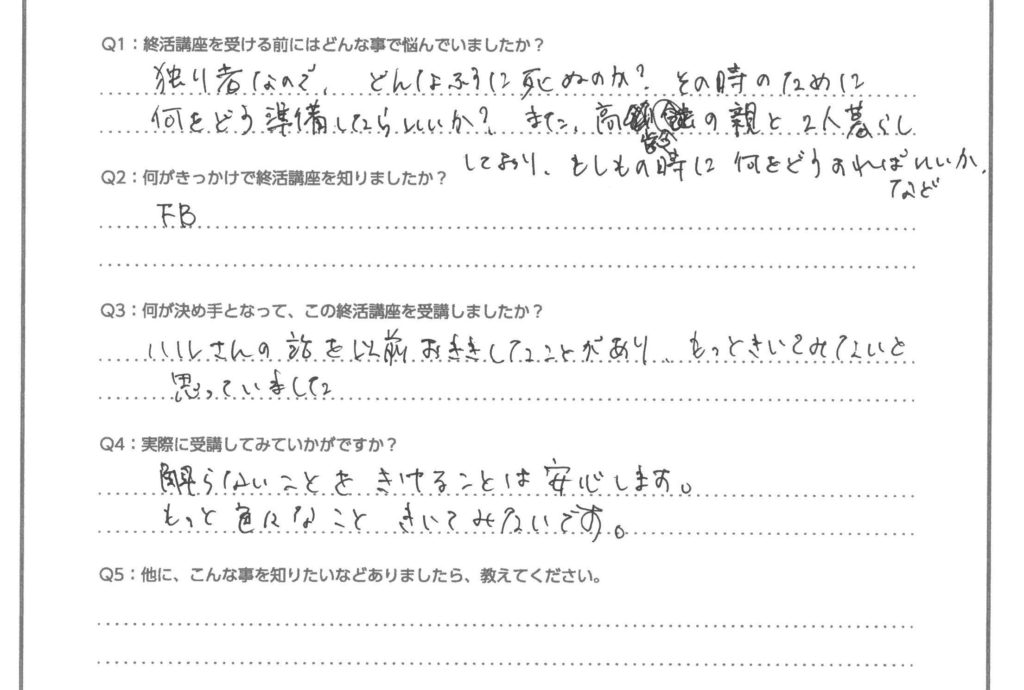 Q1：終活講座を受ける前にはどんな事で悩んでいましたか？
独り者なので、どんなふうに死ぬのか？その時のために
何をどう準備したらいいか？、また、高齢の親と2人暮らし
しており、もしもの時に何をどうすればいいか、
など
Q2：何がきっかけで終活講座を知りましたか？
FB
Q3：何が決め手となって、この終活講座を受講しましたか？
ハルさんの話を以前おききしたことがあり、もっときいてみたいと
思っていました
Q4：実際に受講してみていかがですか？
らないことをきけることは安心します。
もっと色々なこときいてみたいです。
Q5：他に、こんな事を知りたいなどありましたら、教えてください。